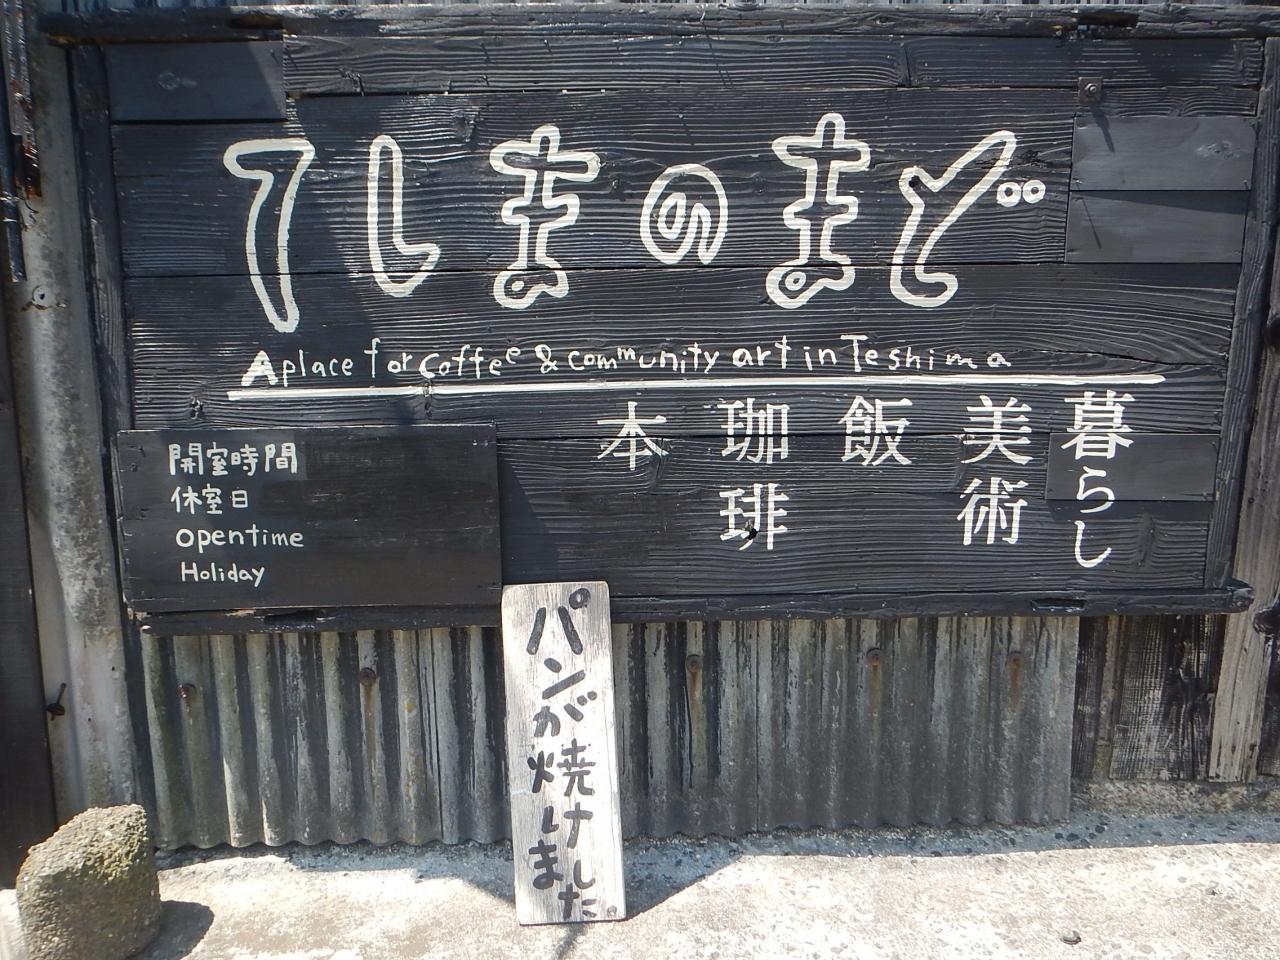 てしまのまど
A place for coffee & community art in Teshima
暮らし
美術
飯
珈琲
本
開室時間
休室日
opentime
Holiday
パンが焼けました。